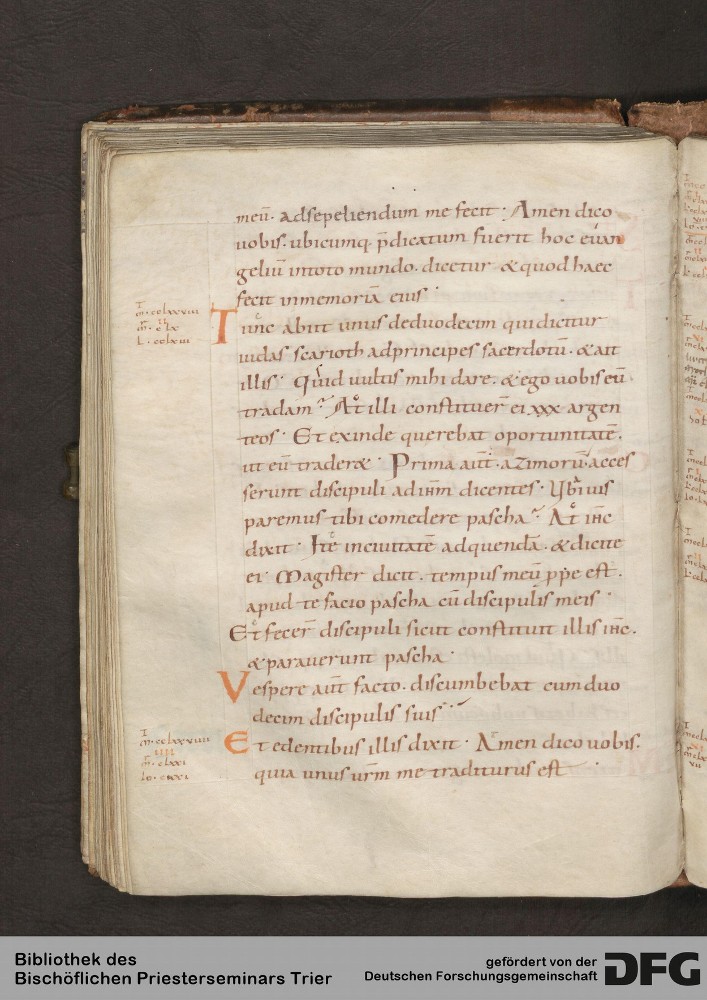 meū. adsepeliendum me fecit. Amen dico
vobis. ubicumq. p̄dicatum fuerit hoc evan
geliū intoto mundo. dicetur & quod haec
fecit inmemoriā eius.
Tunc abiit unus deduodecim qui dicitur
iudas scarioth adprincipes sacerdotū. & ait
illis. Quid vultis mihi dare. & ego vobis eū
tradam? At illi constituer̄ ei xxx argen
teos. Et exinde querebat oportunitatē.
ut eū trader&. Prima aut̄. azimorū. acces
serunt discipuli adih̄m dicentes. Ubi vis
paremus tibi comedere pascha? At ih̄c
dixit. Ite incivitatē adquendā. & dicite
ei. Magister dicit. tempus meū ꝓpe est.
apud te facio pascha cū discipulis meis.
Et fecer̄ discipuli sicut constituit illis ih̄c.
& paraverunt pascha.
Vespere aut̄ facto. discumbebat cum duo
decim discipulis suis.
Et edentibus illis dixit. Amen dico vobis.
quia unus vr̄m me traditurus est
m̄. cclxxiiii
II
l. cclxiii
m̄. cclxxviiii
IIII
m̄. clxxi
Bibliothek des
Bischöflichen Priesterseminars Trier
gefördert von der
Deutschen Forschungsgemeinschaft
DFG